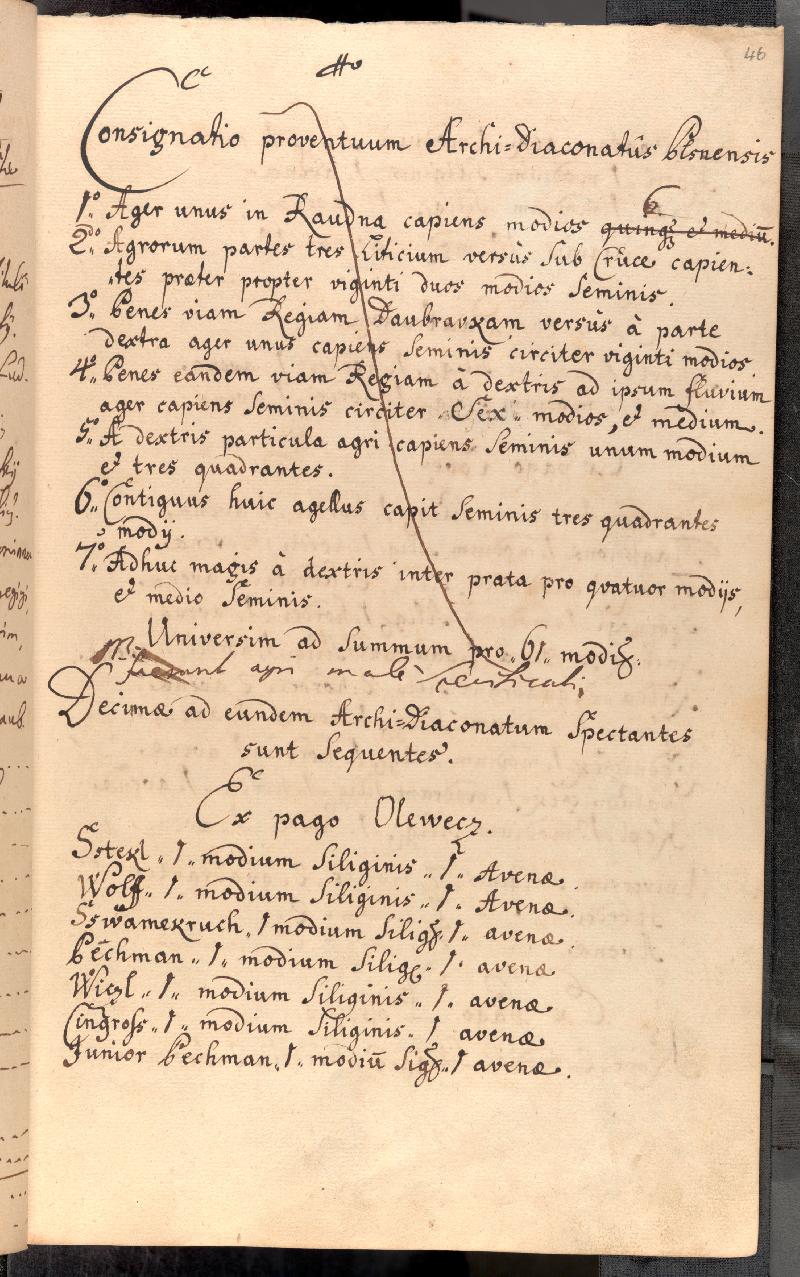 46
Consignatio proventuum Archi=Diaconatûs Bisnensis
6
1º Ager unus in Raudna capiens modios quinqз et mediū.
2do Agrorum partes tres Liticium versùs sub Cruce capien=
=tes præter propter viginti duos modios Seminis.
3º Penes viam Regiam Daubravxam versùs à parte
dextra ager unus capiens Seminis circiter viginti modios
4º Penes eandem viam Regiam à dextris ad ipsum fluvium
ager capiens Seminis circiter Sex modios, et medium.
5º A dextris particula agri capiens Seminis unum modium
et tres quadrantes.
6º Contiguus huic agellus capit Seminis tres quadrantes
mody.
7º Adhuc magis à dextris inter prata pro qvatuor modijs,
et medio Seminis.
Universim ad Summum pro „61„ modiз.
fuerunt agri male
Decimæ ad eundem Archi=Diaconatum Spectantes
sunt Sequentes.
Ex pago Olewecz.
Sstekl „1„ modium Siliginis „1„ Avenæ.
Wolf „1„ modium Siliginis „1„ Avenæ.
Sswamekruch „1 modium Siligз „1„ avenæ.
Pechman „1„ modium Silig. 1. avenæ
Wiczl „1„ modium Siliginis „1. avenæ
Cingross „1„ modium Siliginis. 1 avenæ
Junior Pechman „1„ modiū Sigз „1 avenæ.